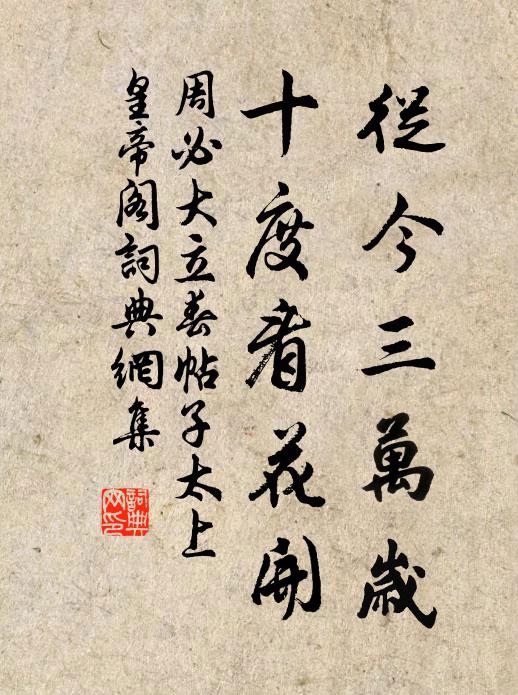 從今三萬歲
十度看花開
周必大立春帖子太上
皇帝閣詞典網集
詞典
网印